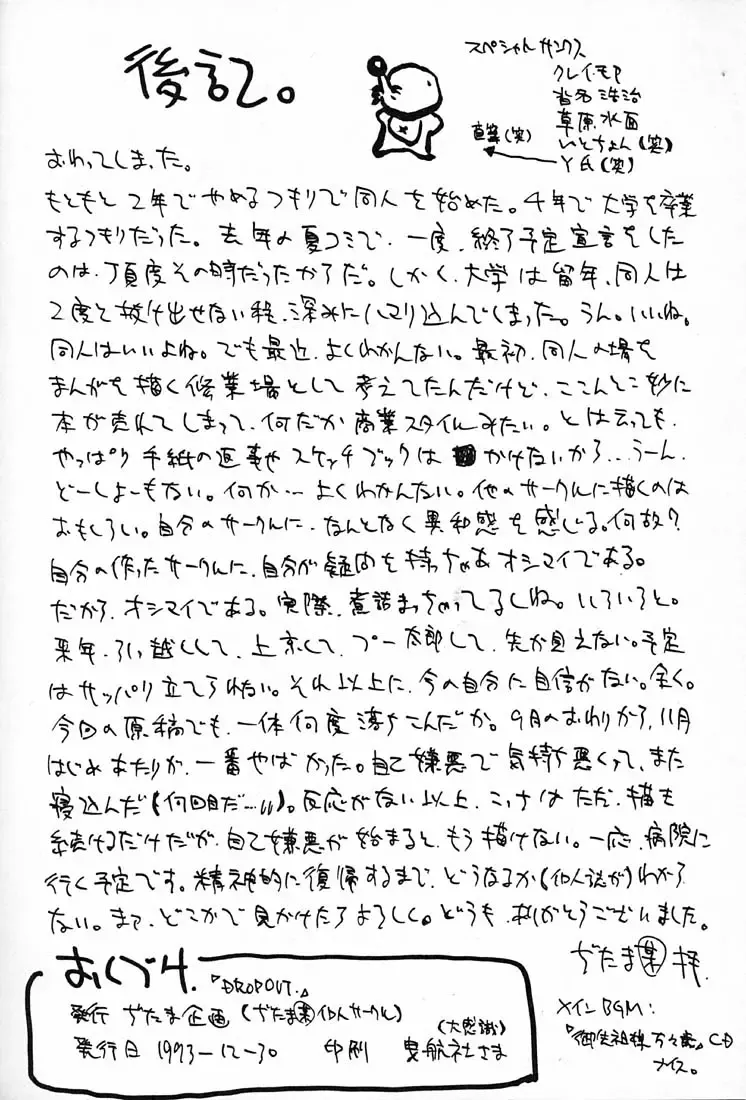 後記。
スペシャルサンクス
クレイモア
沓名浩治
草原水面
いとちょん(笑)
Y氏(笑)
直筆(笑)
おわってしまった。
もともと2年でやめるつもりで同人を始めた。4年で大学を卒業
するつもりだった。去年の夏コミで、一度、終了予定宣言をした
のは、丁度その時だったからだ。しかし、大学は留年、同人は
2度と抜け出せない程、深みにハマり込んでしまった。うん。いいね。
同人はいいよね。でも最近、よくわかんない。最初、同人の場を
まんがを描く修業場として考えてたんだけど、ここんとこ妙に
本が売れてしまって、何だか商業スタイルみたい。とは云っても、
やっぱり手紙の返事やスケッチブックはかけないから…うーん、
どーしよーもない。何か…よくわかんない。他のサークルに描くのは
おもしろい。自分のサークルに、なんとなく異和感を感じる。何故?
自分の作ったサークルに、自分が疑問を持っちゃあオシマイである。
だから、オシマイである。実際、煮詰まっちゃってるしね。いろいろと。
来年、引っ越しして、上京して、プー太郎して、先が見えない。予定
はサッパリ立てられない。それ以上に、今の自分に自信がない。全く。
今回の原稿でも、一体何度落ちこんだか。9月のおわりから、11月
はじめあたりが、一番やばかった。自己嫌悪で気持ち悪くって、また
寝込んだ(何回目だ…)。反応がない以上、こっちはただ、描き
続けるだけだが、自己嫌悪が始まると、もう描けない。一応、病院に
行く予定です。精神的に復帰するまで、どうなるか(個人誌が)わから
ない。まて、どこかで見かけたらよろしく。どうも、ありがとうございました。
ぢたま某 拝.
おくづけ.
『DROPOUT』
発行 ぢたま企画(ぢたま某個人サークル)
発行日 1993-12-30 印刷 曳航社さま
(大感謝)
メインBGM:
『御先祖様万々歳』CD
ナイス。